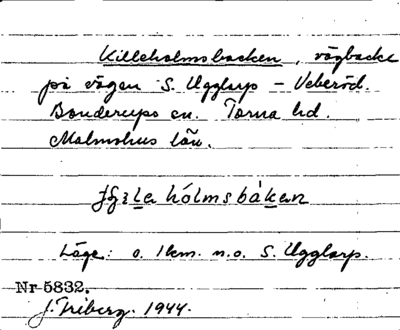 Killeholmsbacken, vägbacke
på vägen S. Ugglarp – Veberöd.
Bonderups sn. Torna hd.
Malmöhus län.
hólmsbákan
Läge: o. 1 km. n.o. S. Ugglarp.
Nr 5832.
J. Friberg. 1944.